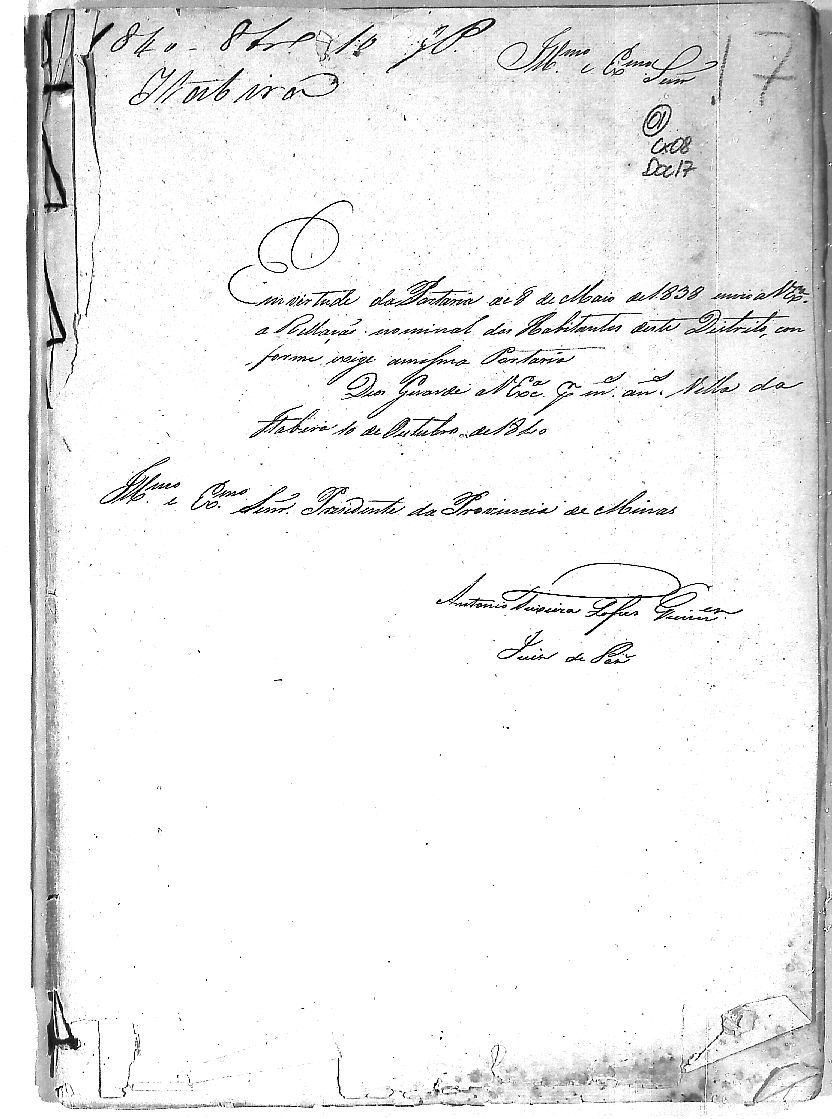 1840 - 8bro 10 JP.
Illmo e Exmo Senr
17
Itabira
01
Cx08
Doc17
Em virtude da Portaria de 8 de Maio de 1838 envio a VExa.
a Rellação nominal dos Habitantes deste Districto, con
forme exige amesma Portaria
Deos Guarde a VExca. por ms. ans. Villa da
Itabira 10 de Outubro de 1840
Illmo. e Exmo. Senr. Presidente da Provincia de Minas
Antonio Teixeira Lopes Guimen
Juiz de Paz